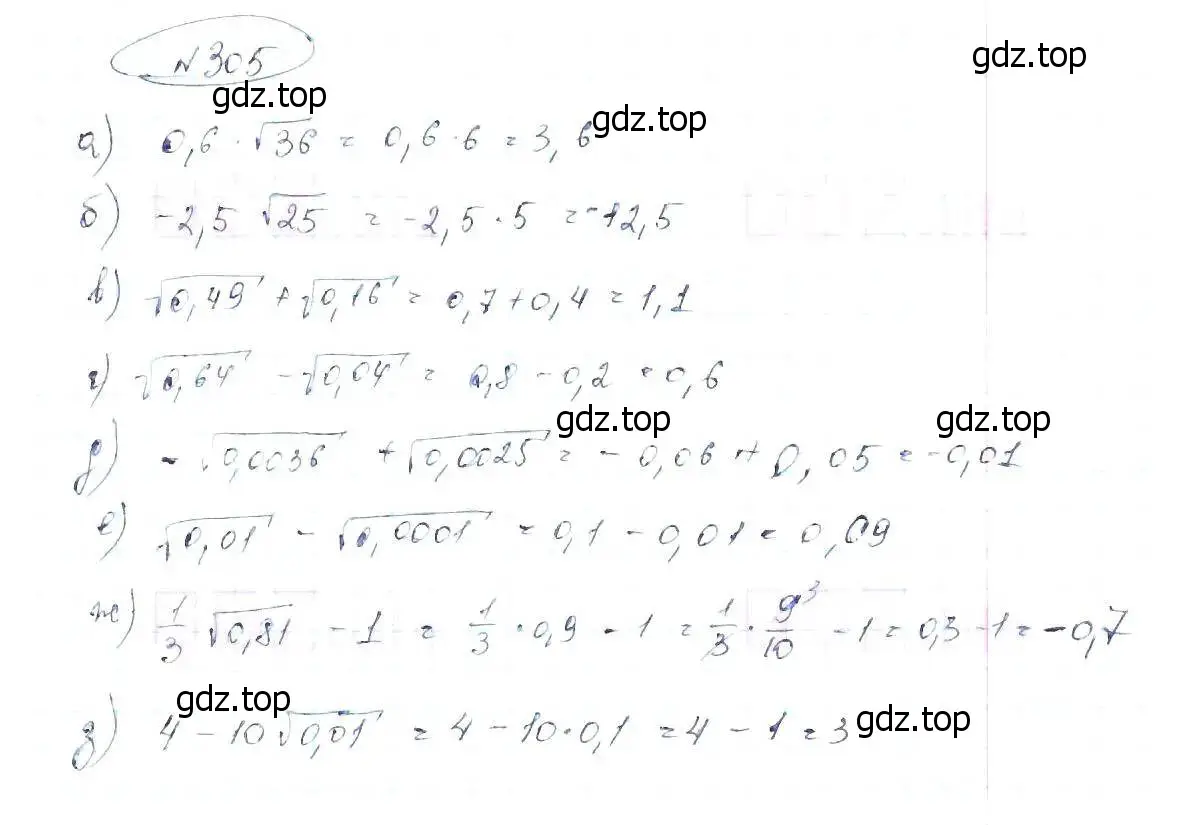 №305
gdz.top
gdz.top
а) 0,6 · √36 = 0,6 · 6 = 3,6
gdz.top
б) -2,5 √25 = -2,5 · 5 = -12,5
в) √0,49 + √0,16 = 0,7 + 0,4 = 1,1
г) √0,64 - √0,04 = 0,8 - 0,2 = 0,6
gdz.top gdz.top
д) - √0,0036 + √0,0025 = - 0,06 + 0,05 = -0,01
е) √0,01 - √0,0001 = 0,1 - 0,01 = 0,09
ж) 1/3 √0,81 - 1 = 1/3 · 0,9 - 1 = 1/3 · 9³/10 - 1 = 0,3 - 1 = -0,7
gdz.top gdz.top
з) 4 - 10√0,01 = 4 - 10 · 0,1 = 4 - 1 = 3